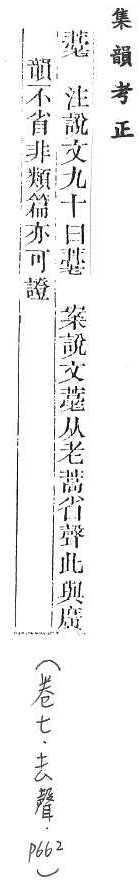 集韻考正
注說文九十曰 案說文从老蒿省聲此與廣
韻不省非類篇亦可證
(卷七·去聲·p662)